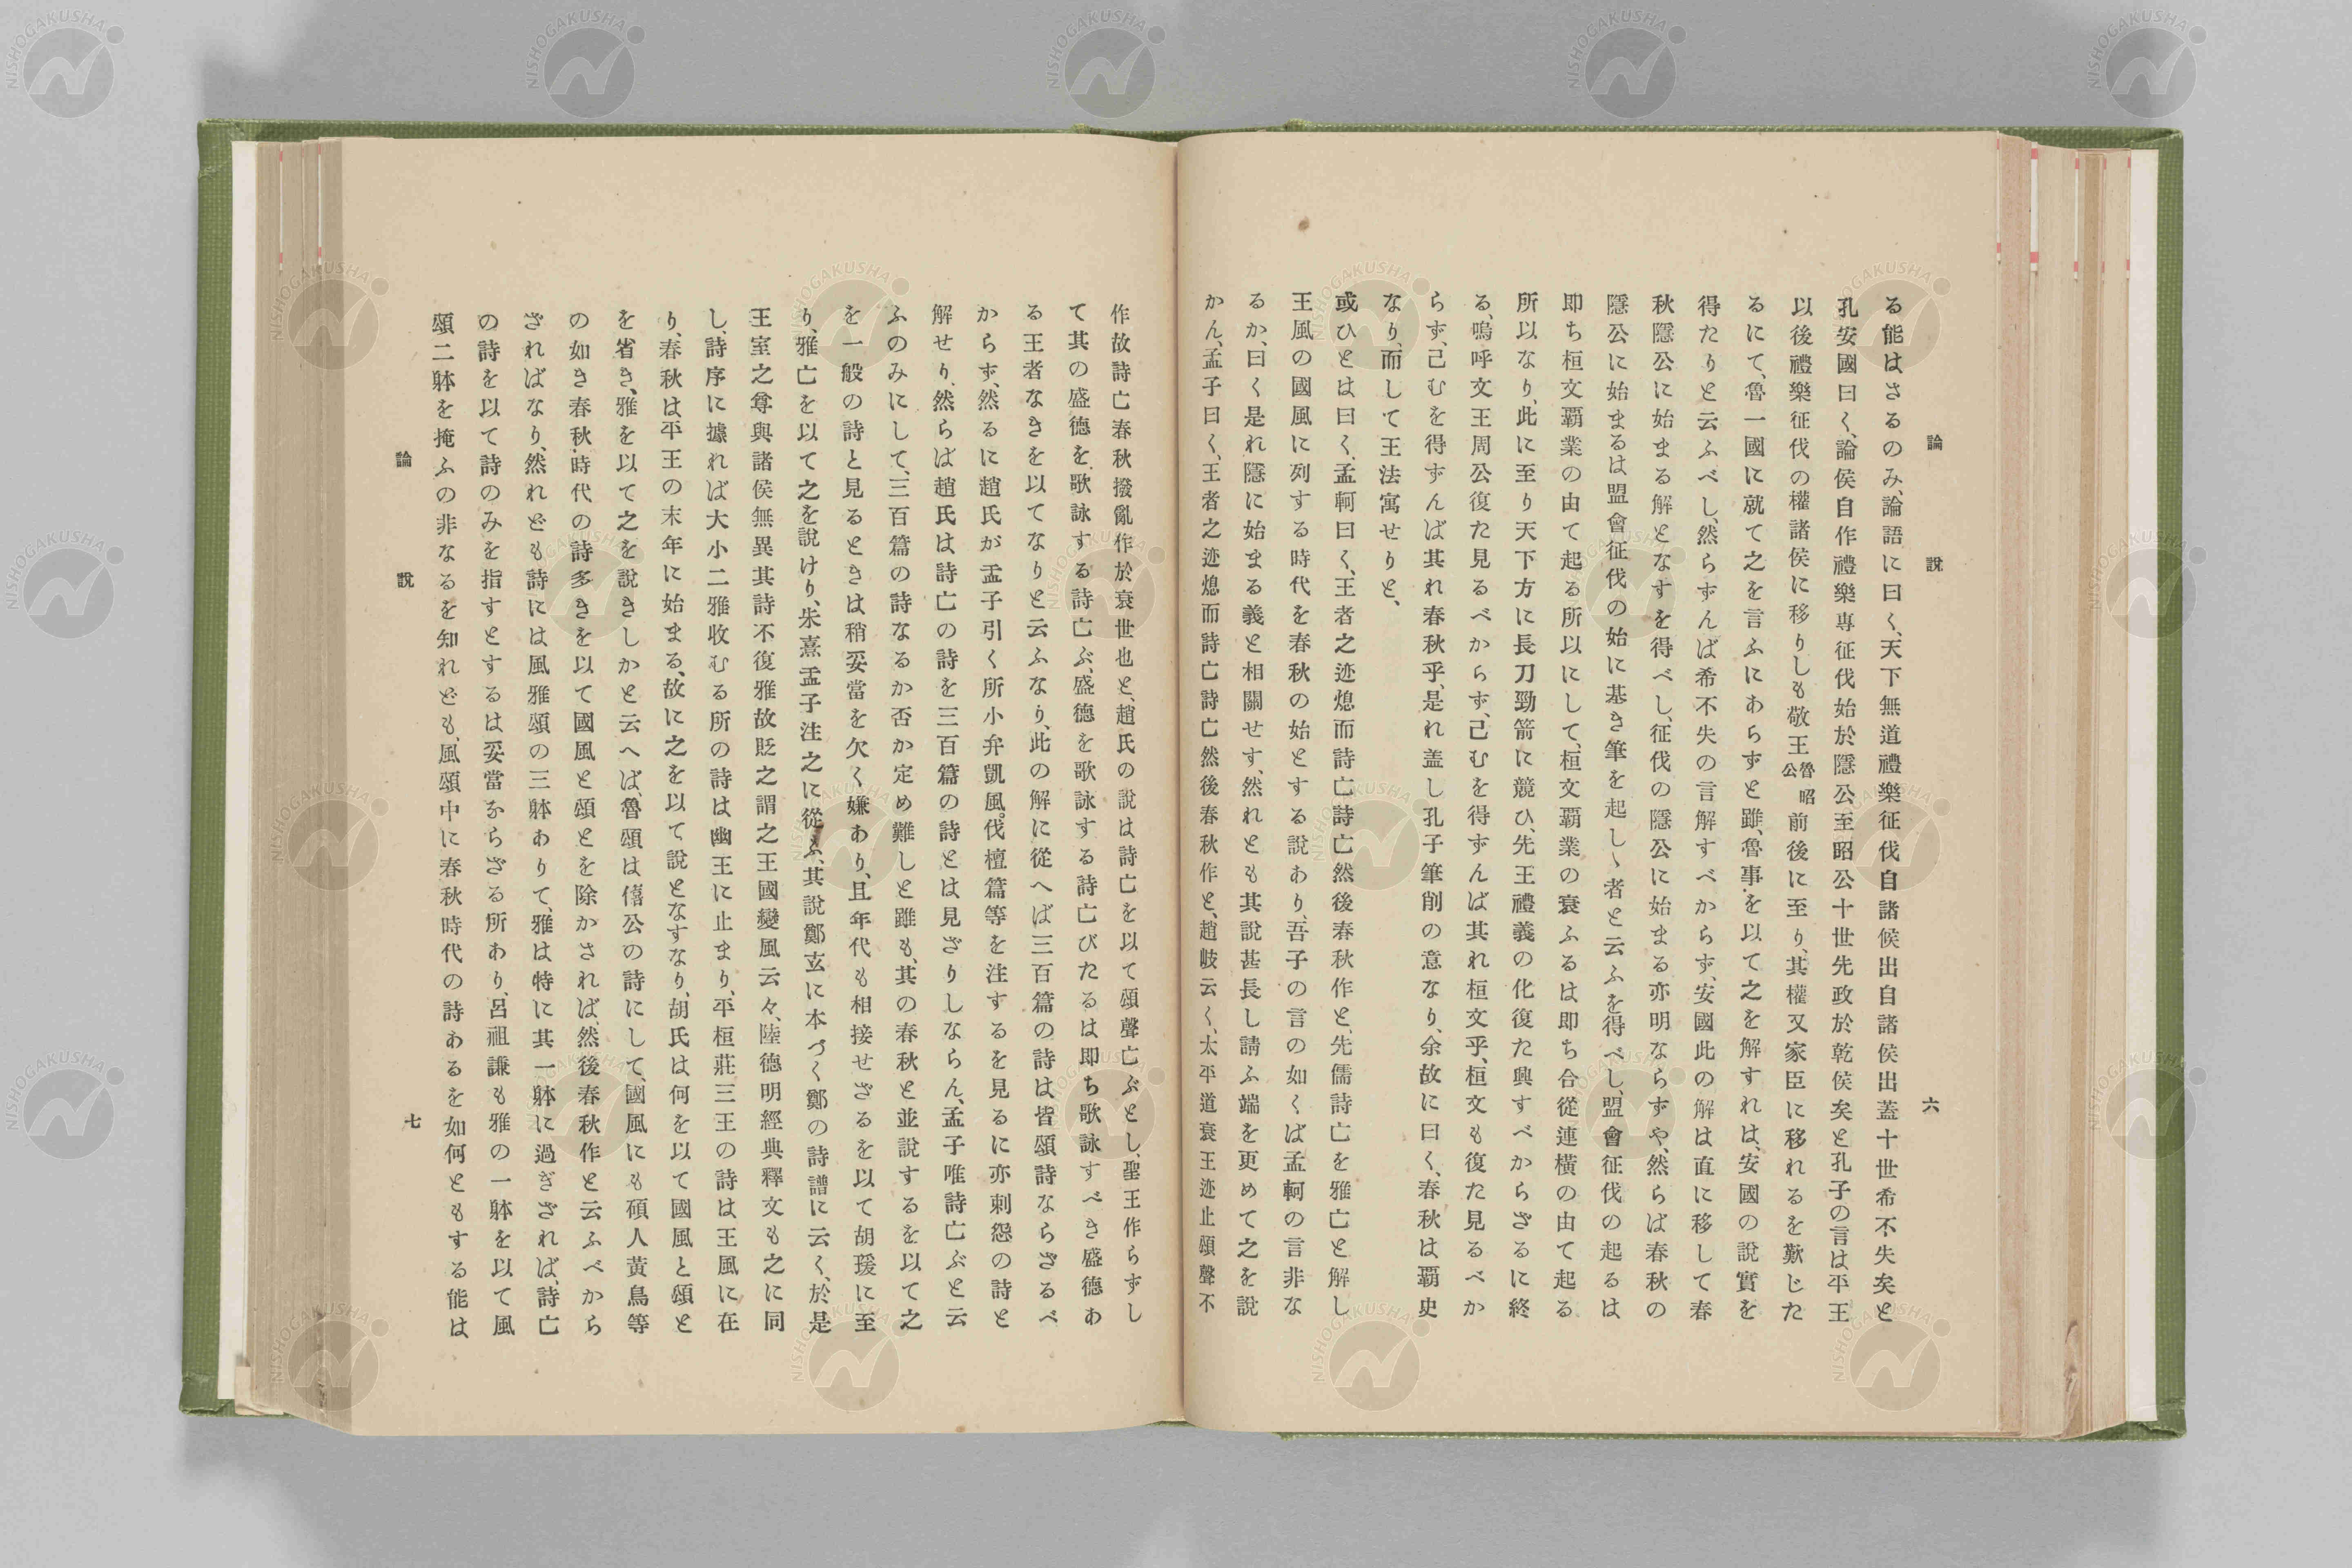 論說
六
る能はさるのみ、論語に曰く、天下無道禮樂征伐自諸候出自諸侯出蓋十世希不失矣と
孔安國曰く、論侯自作禮樂専征伐始於隱公至昭公十世先政於乾侯矣と孔子の言は平王
以後禮樂征伐の權諸侯に移りしも敬王魯昭公前後に至り、其權又家臣に移れるを歎じた
るにて、魯一國に就て之を言ふにあらずと雖、魯事を以て之を解すれは、安國の說實を
得たりと云ふべし、然らずんば希不失の言解すべからず、安國此の解は直に移して春
秋隱公に始まる解となすを得べし、征伐の隱公に始まる亦明ならずや、然らば春秋の
隱公に始まるは盟會征伐の始に基き筆を起しゝ者と云ふを得べし、盟會征伐の起るは
即ち桓文覇業の由て起る所以にして、桓文覇業の衰ふるは即ち合從連橫の由て起る
所以なり、此に至り天下方に長刀勁箭に競ひ、先王禮義の化復た興すべからざるに終
る、嗚呼文王周公復た見るべからず、己むを得ずんば其れ桓文乎、桓文も復た見るべか
らず、己むを得ずんば其れ春秋乎、是れ盖し孔子筆削の意なり、余故に曰く、春秋は覇史
なり、而して王法寓せりと、
或ひとは曰く、孟軻曰く、王者之迹熄而詩亡詩亡然後春秋作と、先儒詩亡を雅亡と解し
王風の國風に列する時代を春秋の始とする說あり、吾子の言の如くば孟軻の言非な
るか、曰く是れ隱に始まる義と相關せす、然れとも其說甚長し請ふ端を更めて之を說
かん、孟子曰く、王者之迹熄而詩亡詩亡然後春秋作と、趙岐云く、太平道衰王迹止頌聲不
作故詩亡春秋撥亂作於衰世也と、趙氏の說は詩亡を以て頌聲亡ぶとし、聖王作らずし
て其の盛德を歌詠する詩亡ぶ、盛德を歌詠する詩亡びたるは即ち歌詠すべき盛德あ
る王者なきを以てなりと云ふなり、此の解に從へば三百篇の詩は、皆頌詩ならざるべ
からず、然るに趙氏が孟子引く所小弁凱風。伐檀篇等を注するを見るに亦刺怨の詩と
解せり、然らば趙氏は詩亡の詩を三百篇の詩とは見ざりしならん、孟子唯詩亡ぶと云
ふのみにして、三百篇の詩なるか否か定め難しと雖も、其の春秋と並說するを以て之
を一般の詩と見るときは稍妥當を欠く嫌あり、且年代も相接せざるを以て胡瑗に至
り、雅亡を以て之を說けり、朱熹孟子注之に從ふ、其說鄭玄に本づく鄭の詩譜に云く、於是
王室之尊與諸侯無異其詩不復雅故貶之謂之王國變風云々、陸德明經典釋文も之に同
し、詩序に據れば大小二雅收むる所の詩は幽王に止まり、平桓莊三王の詩は王風に在
り、春秋は平王の末年に始まる、故に之を以て說となすなり、胡氏は何を以て國風と頌と
を省き、雅を以て之を說きしかと云へば、魯頌は僖公の詩にして、國風にも碩人黃鳥等
の如き春秋時代の詩多きを以て國風と頌とを除かされば、然後春秋作と云ふべから
ざればなり、然れども詩には風雅頌の三躰ありて、雅は特に其一躰に過ぎざれば、詩亡
の詩を以て詩のみを指すとするは妥當ならざる所あり、呂祖謙も雅の一躰を以て風
頌二躰を掩ふの非なるを知れども、風頌中に春秋時代の詩あるを如何ともする能は
論說
七